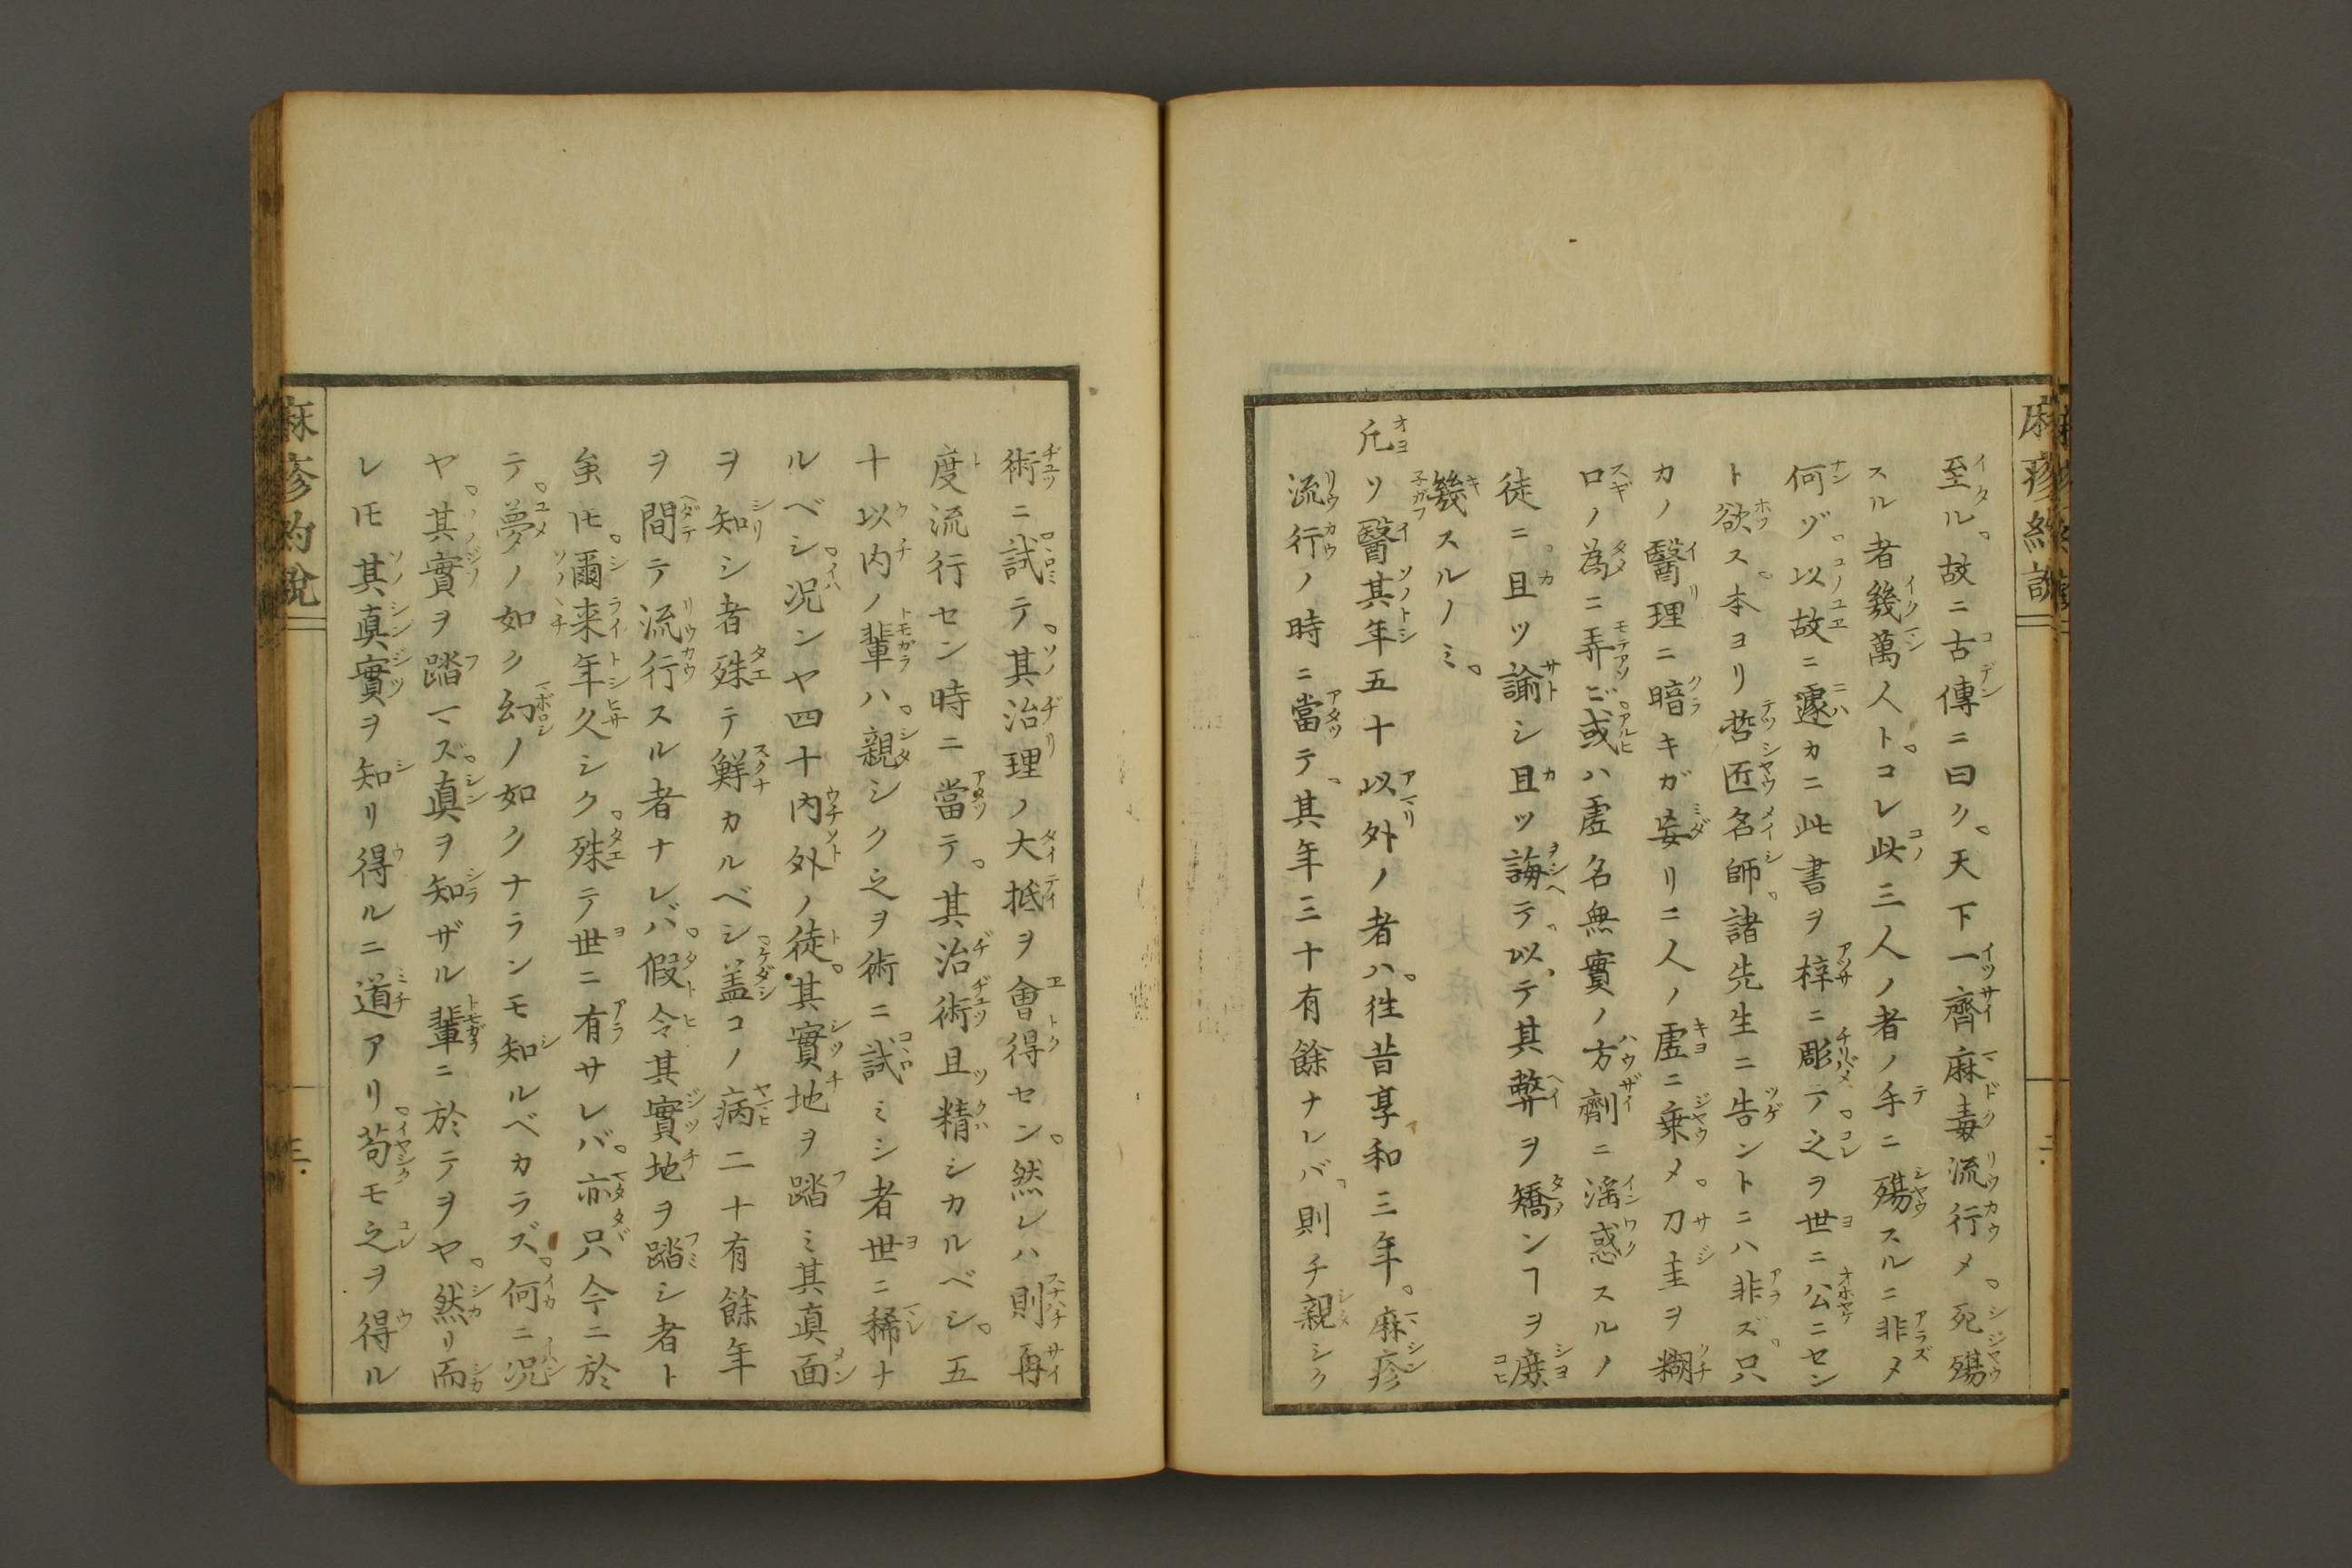 麻疹約説
至ル。故ニ古傳ニ曰ク。天下一齊麻毒流行メ。死殤
スル者幾萬人ト。コレ此三人ノ者ノ手ニ殤スルニ非メ
何ゾ。以故ニ遽カニ此書ヲ梓ニ彫テ。之ヲ世ニ公ニセン
ト欲ス。本ヨリ哲匠名師。諸先生ニ告ントニハ非ズ。只
カノ醫理ニ暗キガ妄リニ人ノ虚ニ乗メ。刀圭ヲ糊
口ノ為ニ弄ビ。或ハ虚名無實ノ方劑ニ滛惑スルノ
徒ニ。且ツ諭シ且ツ誨テ。以テ其弊ヲ矯ンヿヲ庶
幾スルノミ。
凡ソ醫其年五十以外ノ者ハ。徃昔享和三年。麻疹
流行ノ時ニ當テ。其年三十有餘ナレバ。則チ親シク
二
術ニ試テ。其治理ノ大抵ヲ會得セン。然レハ則再
度流行セン時ニ當テ。其治術且精シカルベシ。五
十以内ノ輩ハ。親シク之ヲ術ニ試ミシ者世ニ稀ナ
ルベシ。况ンヤ四十内外ノ徒。其實地ヲ踏ミ其真面
ヲ知シ者殊テ鮮カルベシ。盖コノ病二十有餘年
ヲ間テ流行スル者ナレバ。假令其實地ヲ踏シ者ト
虽ヒ。爾来年久シク。殊テ世ニ有サレバ。亦只今ニ於
テ。夢ノ如ク幻ノ如クナランモ知ルベカラズ。何ニ况
ヤ。其實ヲ踏マズ。真ヲ知ザル輩ニ於テヲヤ。然リ而
レヒ其真實ヲ知リ得ルニ道アリ。苟モ之ヲ得ル
麻疹約說
三